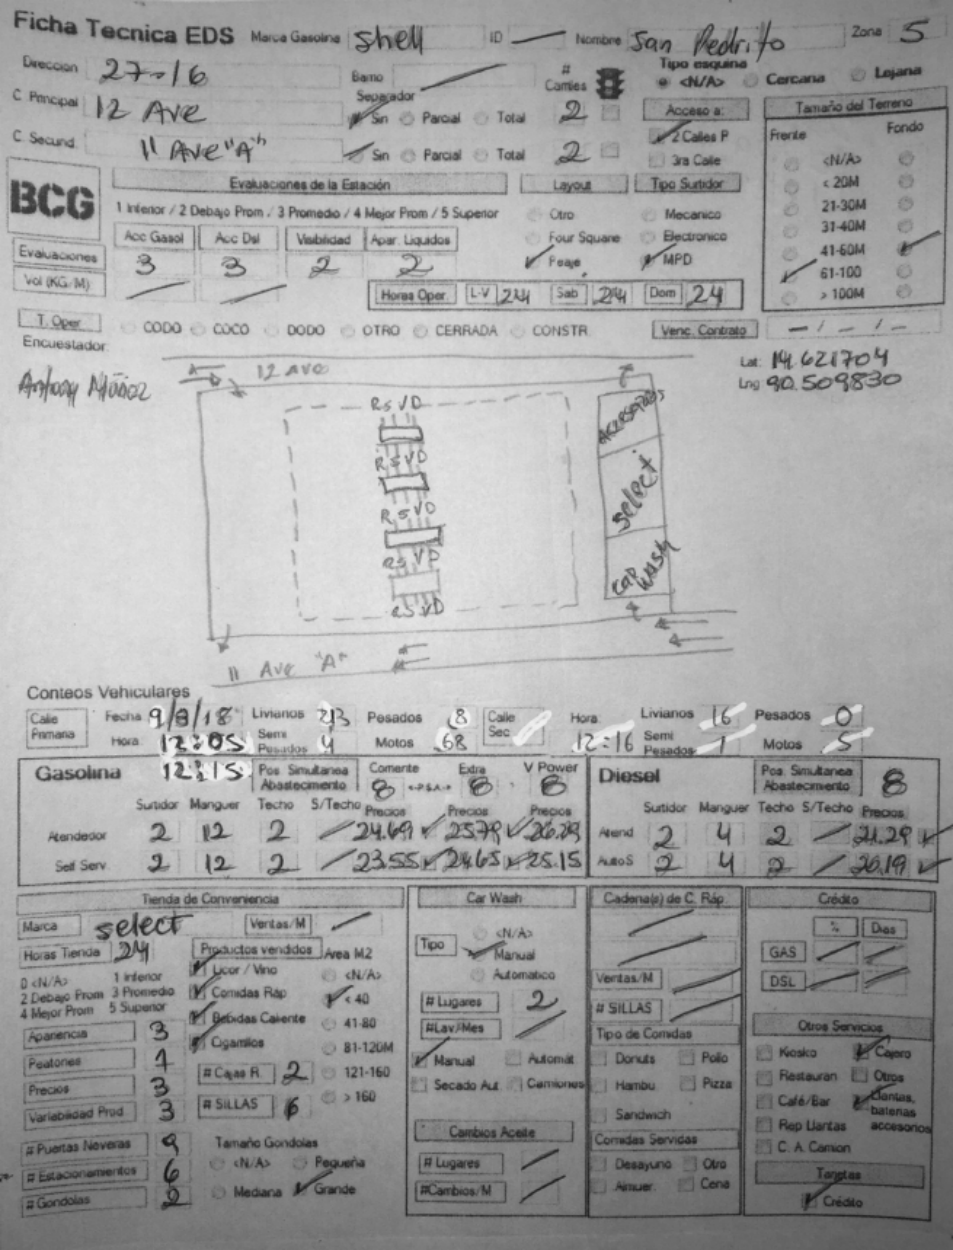 Ficha Tecnica EDS Marca Gasolina Shell ID — Nombre San Pedrito Zona 5
Direccion 27-16 Barrio # Carriles Tipo esquina <N/A> Cercana Lejana
C Principal 12 Ave Separador Sin Parcial Total 2 Acceso a: Tamaño del Terreno
C Secund. 11 Ave "A" Sin Parcial Total 2 2 Calles P Frente Fondo
3ra Calle <N/A>
BCG Evaluaciones de la Estación Layout Tipo Surtidor < 20M
1 Inferior / 2 Debajo Prom / 3 Promedio / 4 Mejor Prom / 5 Superior Otro Mecanico 21-30M
Acc Gasol Acc Dsl Visibilidad Apar. Liquidos Four Square Electronico 31-40M
Evaluaciones 3 3 2 2 Peaje MPD 41-60M
61-100
Vol (KG/M) Horas Oper. L-V 24 Sab 24 Dom 24 > 100M
T. Oper CODO COCO DODO OTRO CERRADA CONSTR. Venc. Contrato - / - / -
Encuestador:
Lat: 14.621704
Lng 90.509830
12 AVE
RSVD
RSVD
RSVD
RSVD
RSVD
Accesorios
Select
Car Wash
11 Ave "A"
Conteos Vehiculares
Calle Primaria Fecha 9/8/18 Livianos 213 Pesados 8 Calle Sec Hora 12:16 Livianos 16 Pesados 0
Hora 12:05 Semi Pesados 4 Motos 68 Semi Pesados 1 Motos 5
12:15
Gasolina Pos. Simultanea Abastecimiento Corriente 8 Extra 8 V Power 8 Diesel Pos. Simultanea Abastecimiento 8
Surtidor Manguer Techo S/Techo Precios Precios Precios Surtidor Manguer Techo S/Techo Precios
Atendedor 2 12 2 24.69 25.79 26.29 Atend 2 4 2 21.29
Self Serv. 2 12 2 23.55 24.65 25.15 AutoS 2 4 2 20.19
Tienda de Conveniencia Car Wash Cadena(s) de C. Ráp. Crédito
Marca select Ventas/M <N/A> % Dias
Horas Tienda 24 Productos vendidos Area M2 Tipo Manual GAS
0 <N/A> 1 Inferior Licor / Vino <N/A> Automatico Ventas/M DSL
2 Debajo Prom 3 Promedio Comidas Ráp < 40 # Lugares 2 # SILLAS
4 Mejor Prom 5 Superior Bebidas Caliente 41-80 #Lav/Mes Tipo de Comidas Otros Servicios
Apariencia 3 Cigarrillos 81-120M Manual Automát Donuts Pollo Kiosko Cajero
Peatones 1 # Cajas R. 2 121-160 Secado Aut Camiones Hambu Pizza Restauran Otros
Precios 3 > 160 Sandwich Café/Bar Llantas, baterias accesorios
Variabilidad Prod 3 # SILLAS 6 Cambios Aceite Rep Llantas
# Puertas Neveras 9 Tamaño Gondolas Comidas Servidas C. A. Camion
# Estacionamientos 6 <N/A> Pequeña # Lugares Desayuno Otro Tarjetas
# Gondolas 2 Mediana Grande #Cambios/M Almuer. Cena Crédito